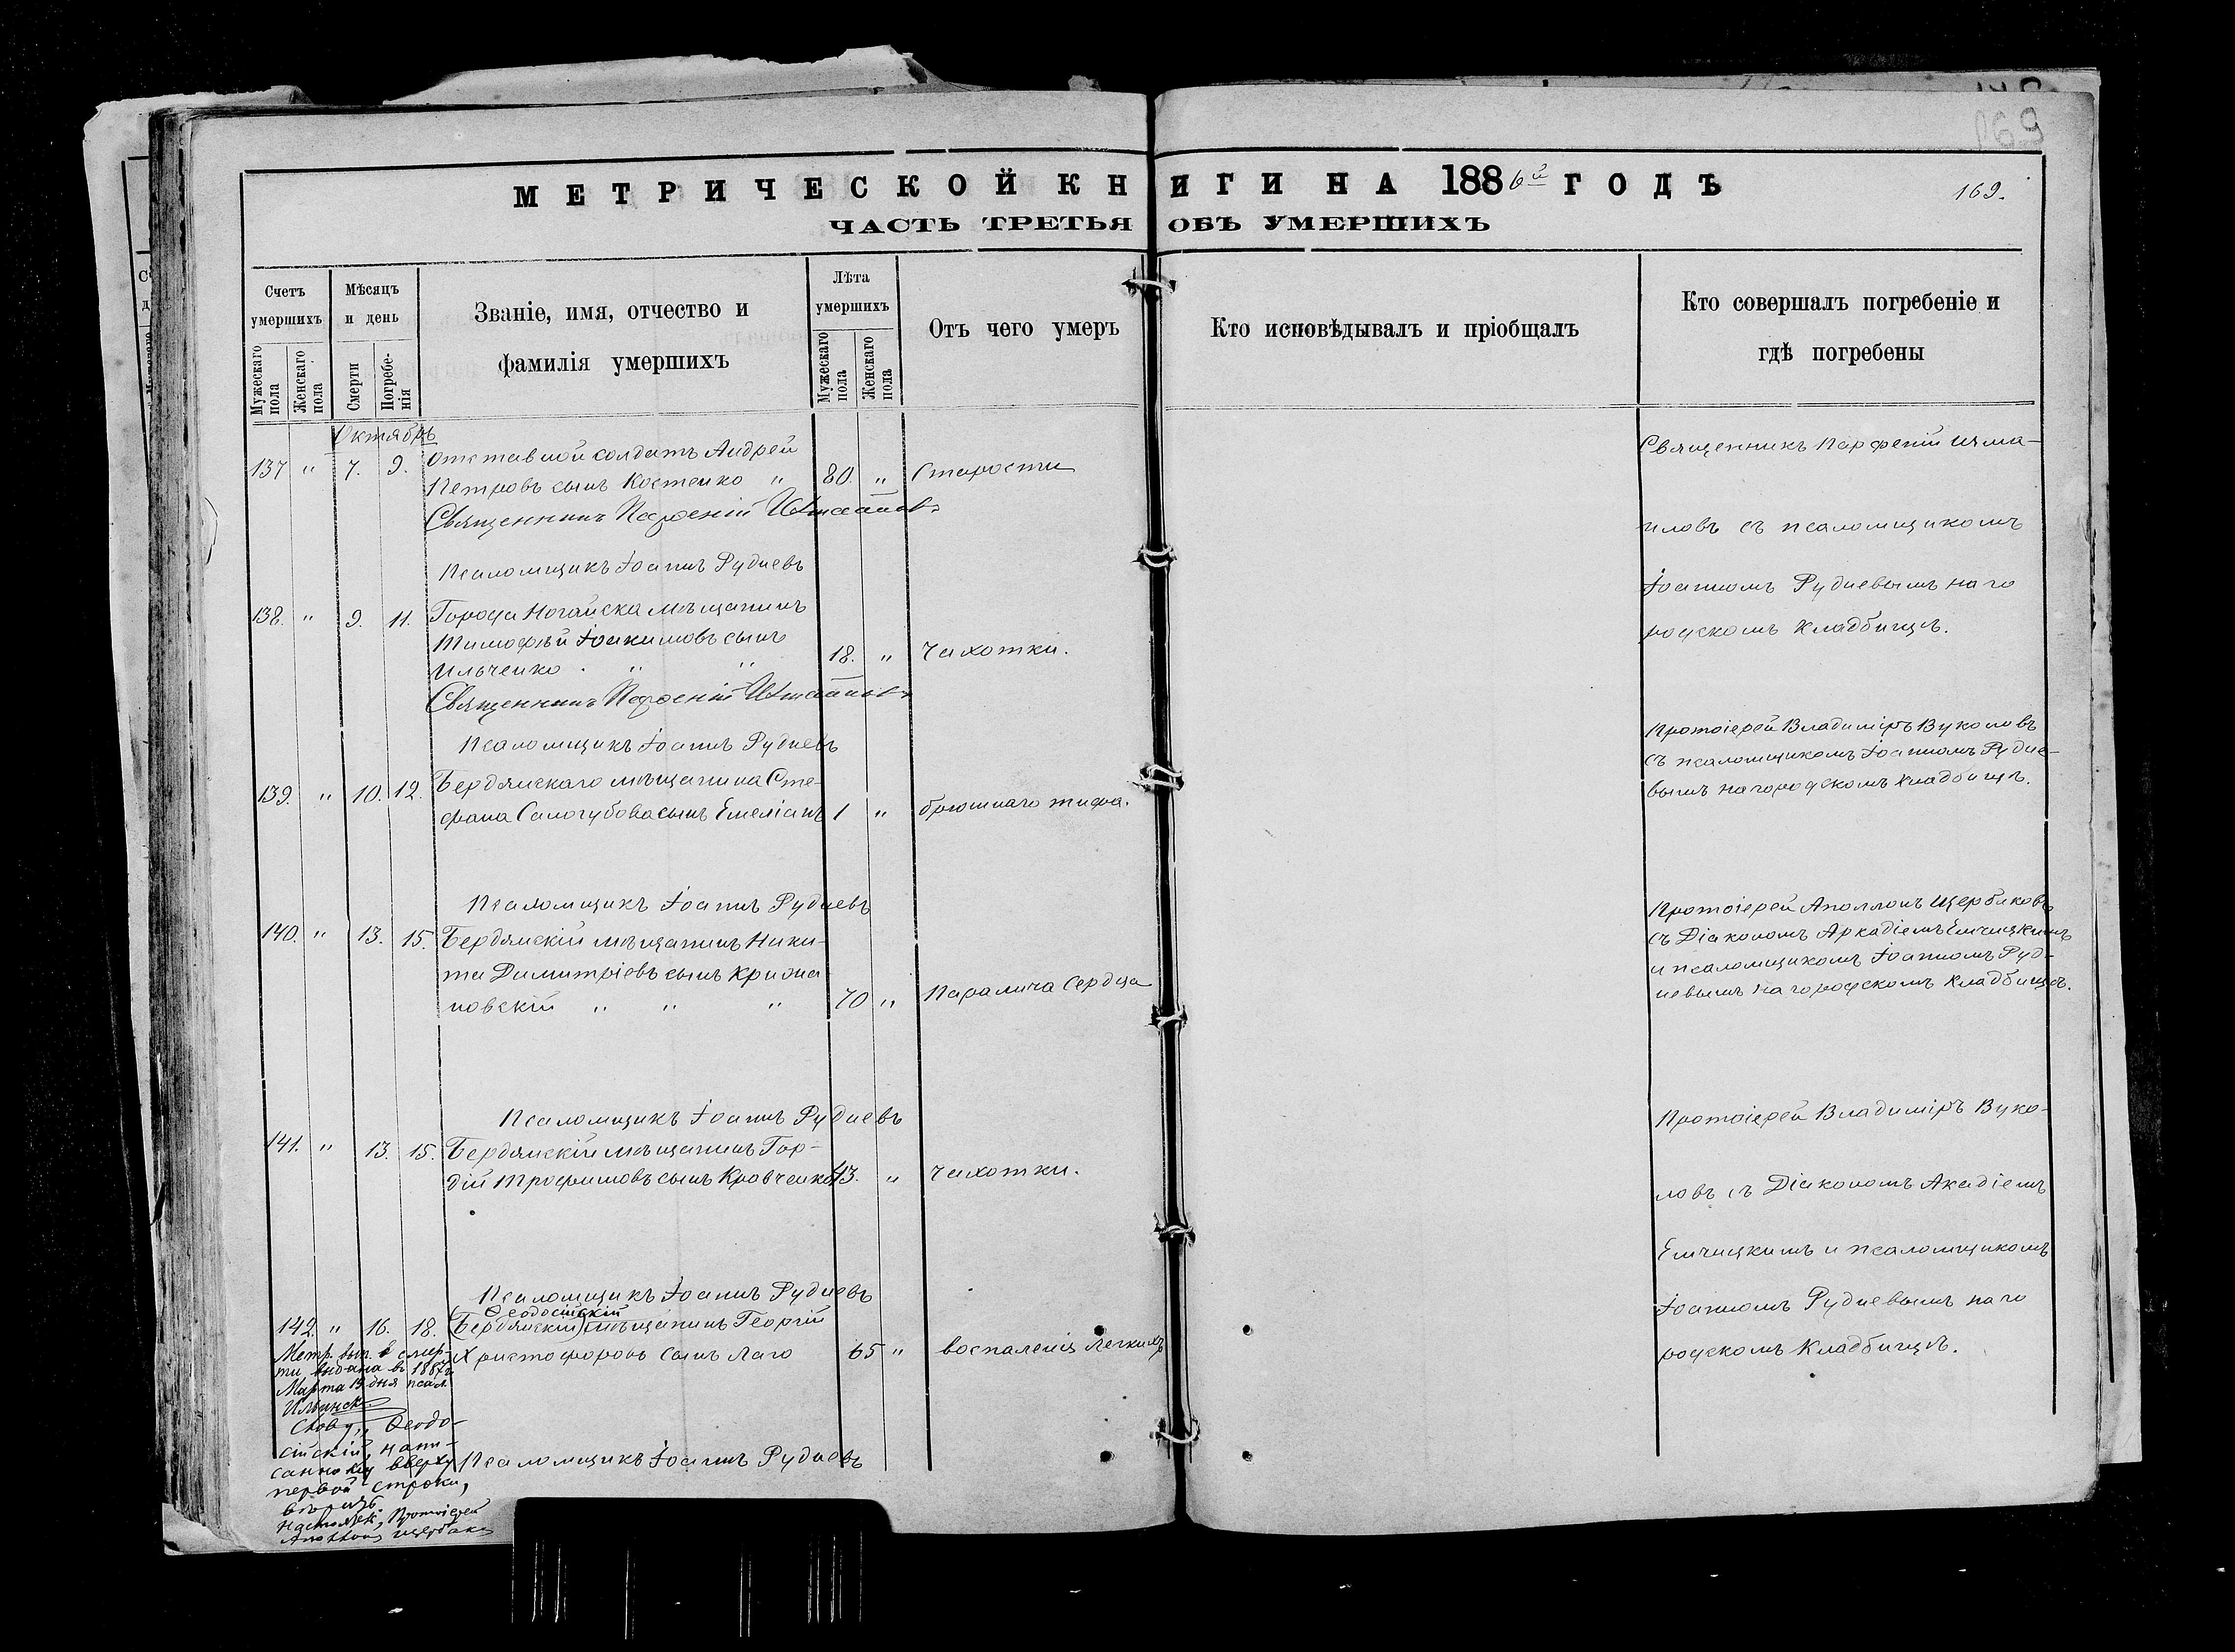 169
МЕТРИЧЕСКОЙ КНИГИ НА 1886й ГОДЪ
169.
ЧАСТЬ ТРЕТЬЯ ОБЪ УМЕРШИХЪ
Счетъ умершихъ
Мужескаго пола
Женскаго пола
Мѣсяцъ и день
Смерти
Погребенія
Званіе, имя, отчество и
фамилія умершихъ
Лѣта умершихъ
Мужескаго пола
Женскаго пола
Отъ чего умеръ
Кто исповѣдывалъ и пріобщалъ
Кто совершалъ погребеніе и
гдѣ погребены
Октябрь
137 " 7. 9. Отставной солдатъ Андрей
Петровъ сынъ Костенко " 80. " Старости
Священникъ Парѳеній Измаиловъ
Псаломщикъ Іоаннъ Рудневъ
Священникъ Парфеній Изма-
иловъ съ псаломщикомъ
Іоанномъ Рудневымъ на го
родскомъ кладбищѣ.
138. " 9. 11. Города Ногайска мѣщанинъ
Тимофѣй Іоакимовъ сынъ
Ильченко . " " 18. " Чахотки.
Священникъ Парѳеній Измаиловъ
Псаломщикъ Іоаннъ Рудневъ
139. " 10. 12. Бердянскаго мѣщанина Сте-
фана Самогубова сынъ Емеліанъ 1 " брюшнаго тифа.
Псаломщикъ Іоаннъ Рудневъ
Протоіерей Владиміръ Вуколовъ
съ псаломщикомъ Іоанномъ Рудне-
вымъ на городскомъ кладбищѣ.
140. " 13. 15. Бердянскій мѣщанинъ Ники-
та Димитріевъ сынъ
новскій " " " 70 " Паралича сердца
Псаломщикъ Іоаннъ Рудневъ
Протоіерей Аполлонъ Щербаковъ
съ Діакономъ Аркадіемъ Емчицкимъ
и псаломщикомъ Іоанномъ Руд-
невымъ на городскомъ кладбищѣ.
141. " 13. 15. Бердянскій мѣщанинъ Гор-
дій Трофимовъ сынъ Кравченко 43. " чахотки.
Псаломщикъ Іоаннъ Рудневъ
Протоіерей Владиміръ Вуко-
ловъ съ Діакономъ Акадіемъ
Емчицкимъ и псаломщикомъ
Іоанномъ Рудневымъ на го
родскомъ кладбищѣ.
Ѳеодосійскій
142. " 16. 18. (Бердянскій) мѣщанинъ Георгій
Христофоровъ сынъ Лаго 65 " воспаленія легкихъ
Псаломщикъ Іоаннъ Рудневъ
Метр. вып. о смер-
ти выдана въ 1887 г.
Марта 13 дня псал.
Ильинск
Слову „Ѳеодо-
сійскій, напи-
санному вверху
первой строки,
вѣрить.
Настоятель, Протоіерей
Аполлонъ Щербаковъ